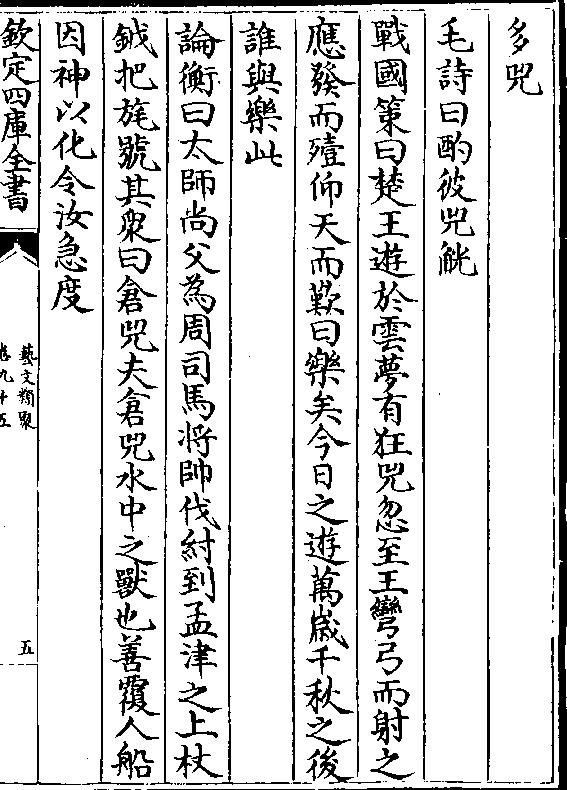 多兕
毛詩曰酌彼兕觥
戰國策曰楚王遊於雲夢有狂兕忽至王彎弓而射之
應發而殪仰天而歎曰樂矣今日之遊萬歲千秋之後
誰與樂此
論衡曰太師尚父為周司馬將帥伐紂到孟津之上杖
鉞把旄號其衆曰倉兕夫倉兕水中之獸也善覆人船
因神以化令汝急度
欽定四庫全書
藝文類聚
卷九十五
五